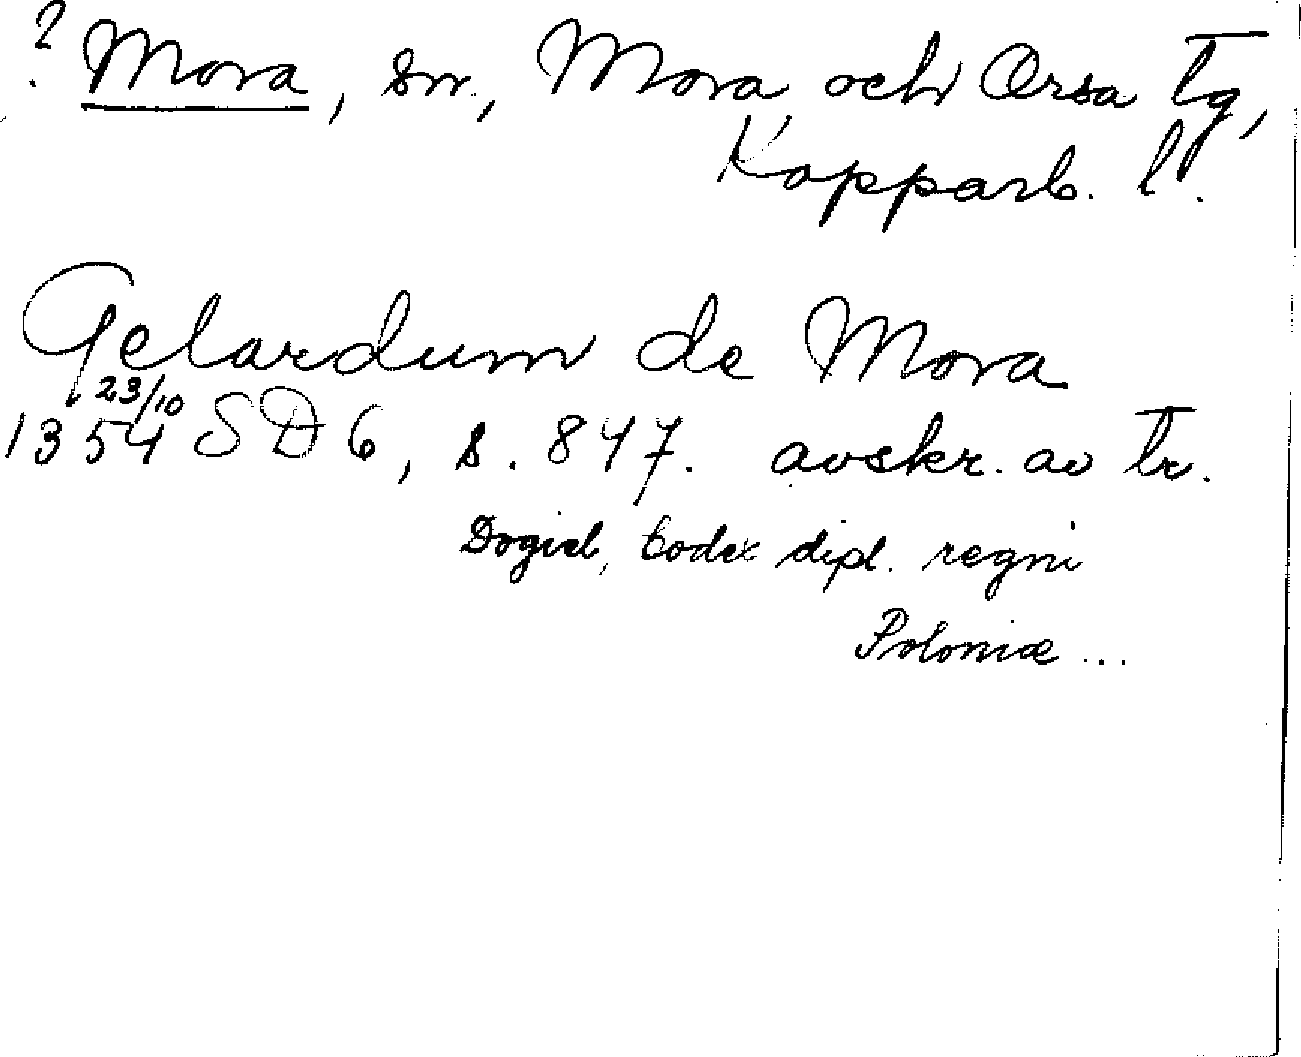 ? Mora, sn, Mora och Orsa tg,
Kopparb. l.
Gelardum de Mora
1354 23/10 SD 6, s. 847. avskr. av tr.
Dogiel, Codex dipl. regni
Poloniæ ...